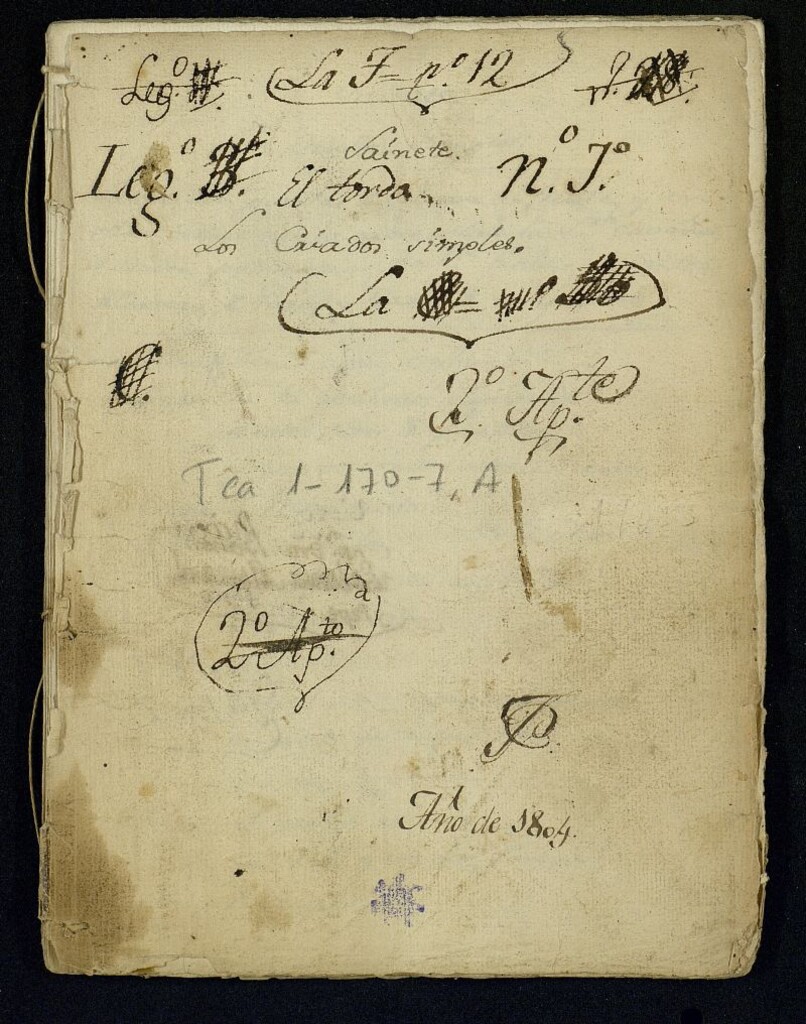 Leg.º La J= nº 12 nº
Sainete.
Leg.º El tordo n.º 7.º
Los Criados simples.
La
2º Ap.te
Tea 1-170-7, A
2º Ap.to
Año de 1804.